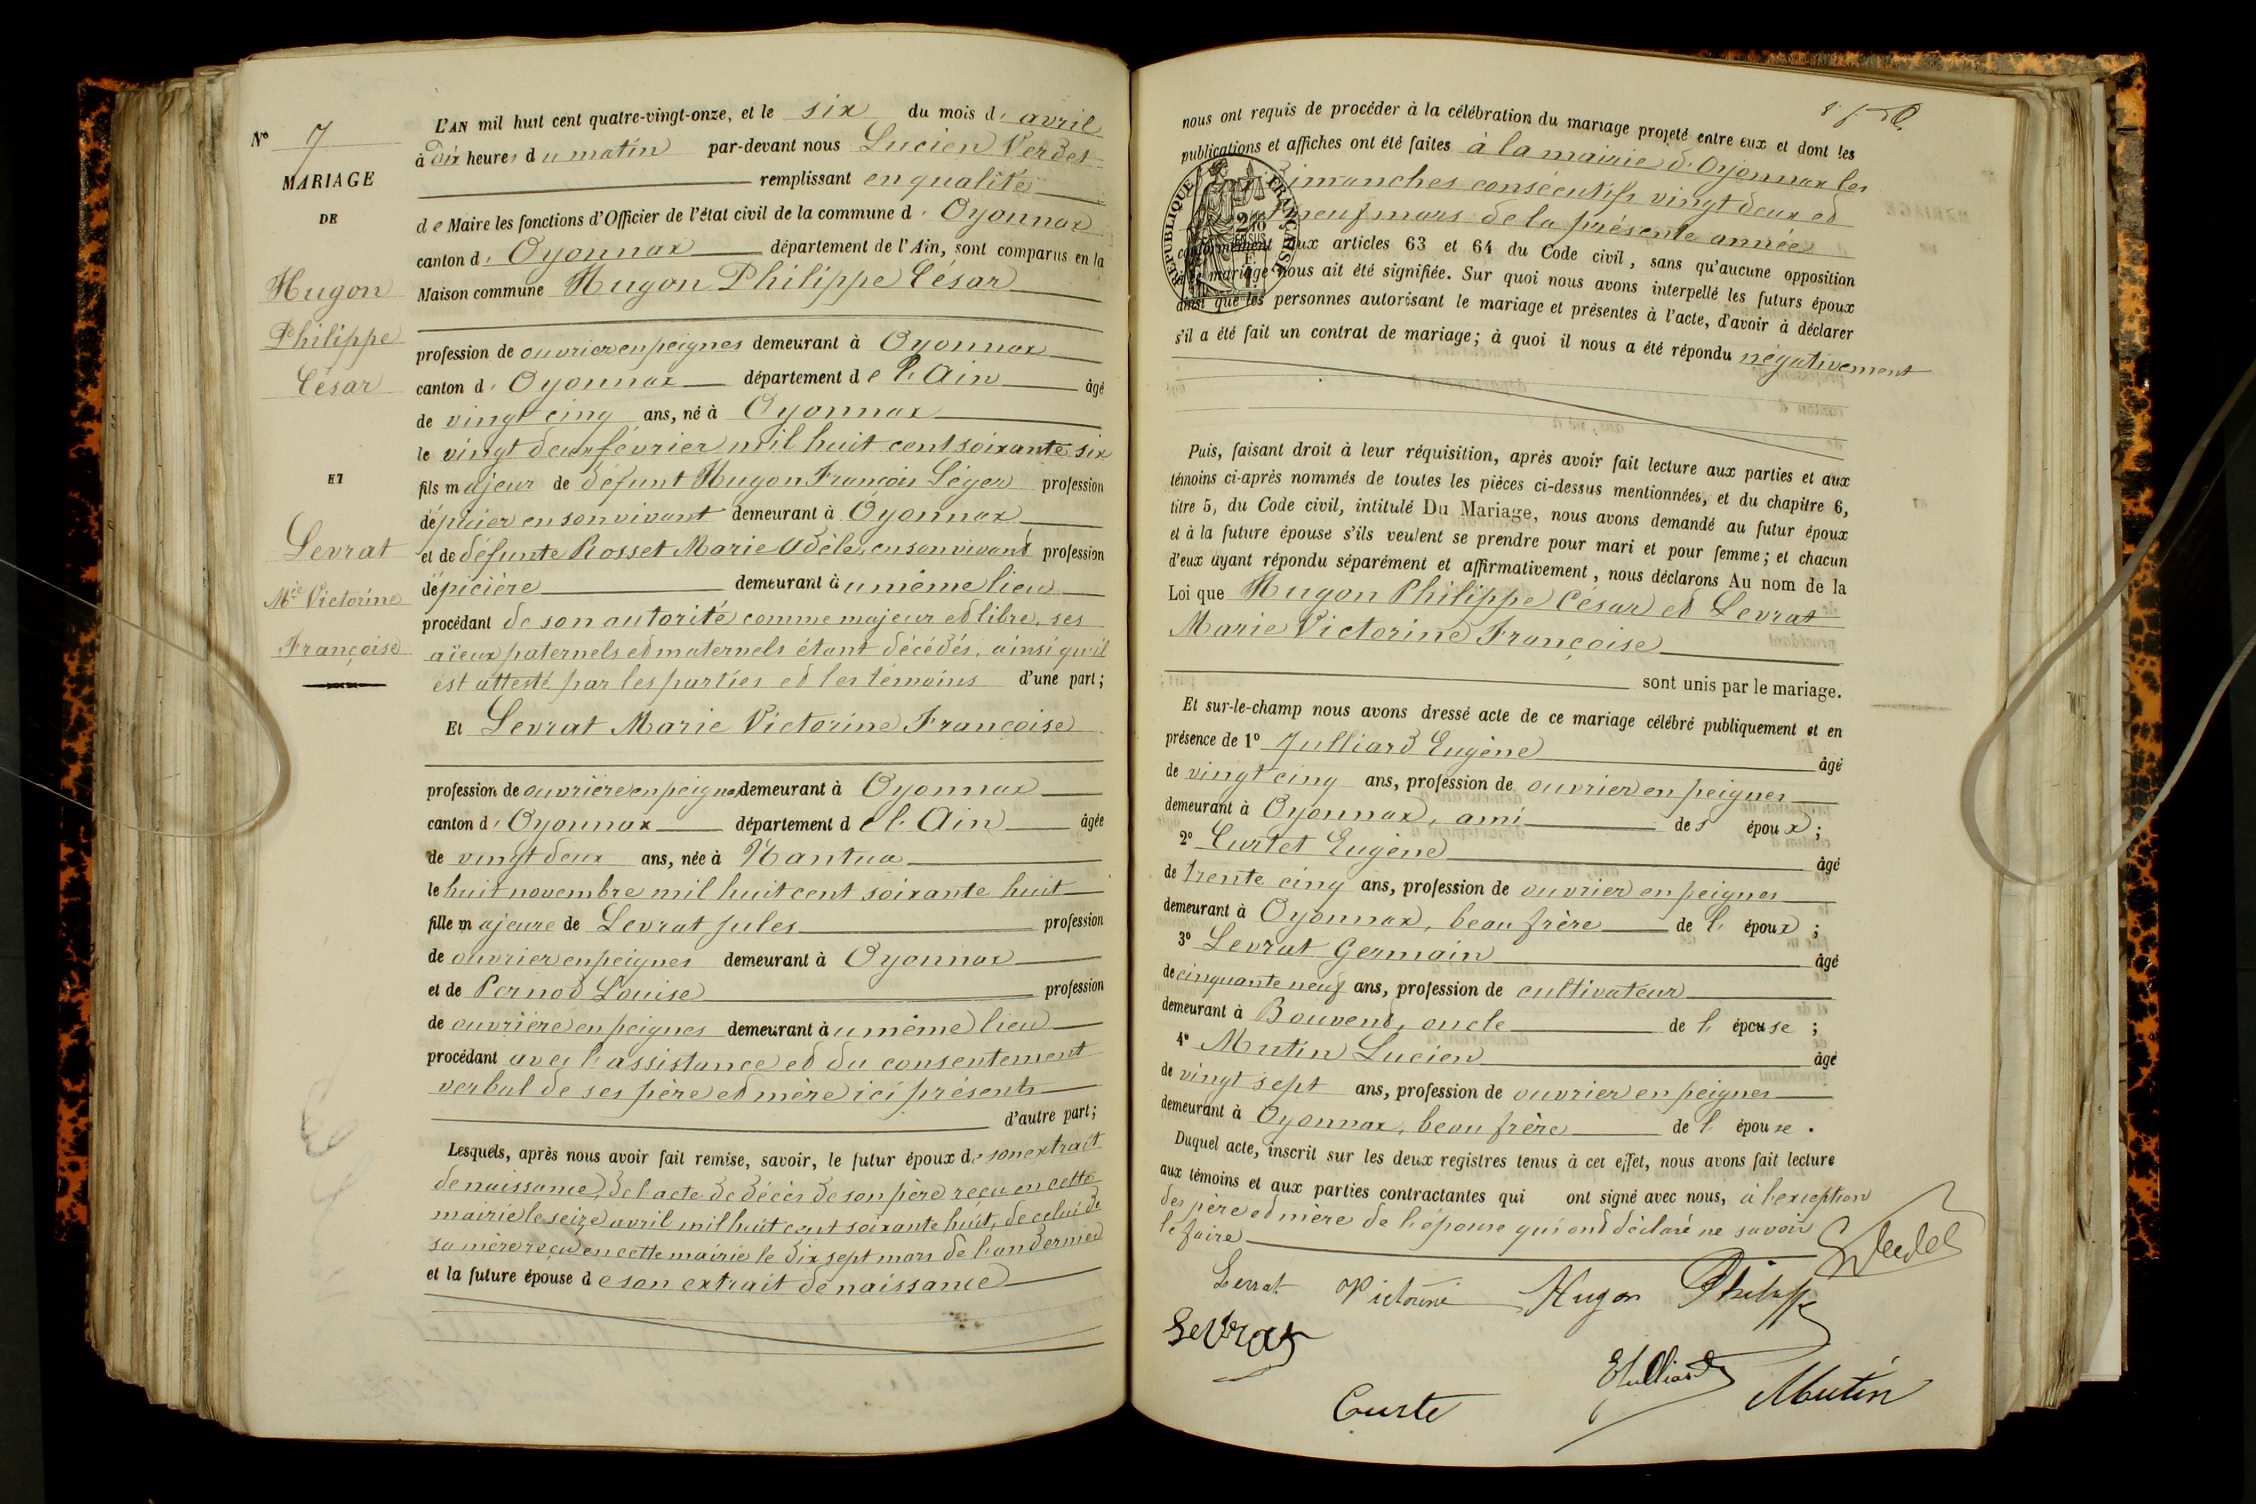 N° 7
MARIAGE
DE
Hugon
Philippe
César
ET
Levrat
Mie Victorine
Françoise
L'AN mil huit cent quatre-vingt-onze, et le six du mois d'avril
à dix heures du matin par-devant nous Lucien Verdet
remplissant en qualité
de Maire les fonctions d'Officier de l'état civil de la commune d'Oyonnax
canton d'Oyonnax département de l'Ain, sont comparus en la
Maison commune Hugon Philippe César
profession de ouvrier en peignes demeurant à Oyonnax
canton d'Oyonnax département de l'Ain âgé
de vingt cinq ans, né à Oyonnax
le vingt deux février mil huit cent soixante six
fils majeur de défunt Hugon François Léger profession
d'épicier en son vivant demeurant à Oyonnax
et de défunte Rosset Marie Adèle, en son vivant profession
d'épicière demeurant à u même lieu
procédant de son autorité comme majeur et libre, ses
aïeux paternels et maternels étant décédés, ainsi qu'il
est attesté par les parties et les témoins d'une part;
Et Levrat Marie Victorine Françoise
profession de ouvrière en peignes demeurant à Oyonnax
canton d'Oyonnax département de l'Ain âgée
de vingt deux ans, née à Nantua
le huit novembre mil huit cent soixante huit
fille majeure de Levrat Jules profession
de ouvrier en peignes demeurant à Oyonnax
et de Pernod Louise profession
de ouvrière en peignes demeurant à u même lieu
procédant avec l'assistance et du consentement
verbal de ses père et mère ici présents
d'autre part;
Lesquels, après nous avoir fait remise, savoir, le futur époux de son extrait
de naissance, de l'acte de décès de son père reçu en cette
mairie le seize avril mil huit cent soixante huit, de celui de
sa mère reçu en cette mairie le dix sept mars de l'an dernier
et la future épouse de son extrait de naissance
nous ont requis de procéder à la célébration du mariage projeté entre eux et dont les
publications et affiches ont été faites à la mairie d'Oyonnax les
dimanches consécutifs vingt deux et
neuf mars de la présente année
conformément aux articles 63 et 64 du Code civil, sans qu'aucune opposition
mariage nous ait été signifiée. Sur quoi nous avons interpellé les futurs époux
ainsi que les personnes autorisant le mariage et présentes à l'acte, d'avoir à déclarer
s'il a été fait un contrat de mariage; à quoi il nous a été répondu négativement
RÉPUBLIQUE FRANÇAISE
Puis, faisant droit à leur réquisition, après avoir fait lecture aux parties et aux
témoins ci-après nommés de toutes les pièces ci-dessus mentionnées, et du chapitre 6,
titre 5, du Code civil, intitulé Du Mariage, nous avons demandé au futur époux
et à la future épouse s'ils veulent se prendre pour mari et pour femme; et chacun
d'eux ayant répondu séparément et affirmativement, nous déclarons Au nom de la
Loi que Hugon Philippe César et Levrat
Marie Victorine Françoise
sont unis par le mariage.
Et sur-le-champ nous avons dressé acte de ce mariage célébré publiquement et en
présence de 1° Julliard Eugène âgé
de vingt cinq ans, profession de ouvrier en peignes
demeurant à Oyonnax, ami des époux;
2° Curtet Eugène âgé
de trente cinq ans, profession de ouvrier en peignes
demeurant à Oyonnax, beau frère de l'époux;
3° Levrat Germain âgé
de cinquante neuf ans, profession de cultivateur
demeurant à Bouvent, oncle de l'épouse;
4° Mutin Lucien âgé
de vingt sept ans, profession de ouvrier en peignes
demeurant à Oyonnax, beau frère de l'épouse.
Duquel acte, inscrit sur les deux registres tenus à cet effet, nous avons fait lecture
aux témoins et aux parties contractantes qui ont signé avec nous, à l'exception
des père et mère de l'épouse qui ont déclaré ne savoir
le faire
Levrat Victorine Hugon Philippe
Levrat
EJulliard
Mutin